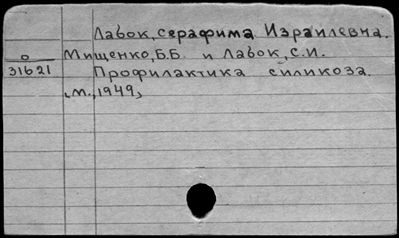 Лавок, Серафима Израилевна.
О Мищенко, Б.Б. и Лавок, С.И.
31621 Профилактика силикоза.
М., 1949,